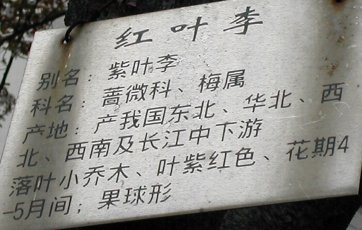 红叶李
别名：紫叶李
科名：蔷微科、梅属
产地：产我国东北、华北、西
北、西南及长江中下游
落叶小乔木、叶紫红色、花期4
-5月间；果球形